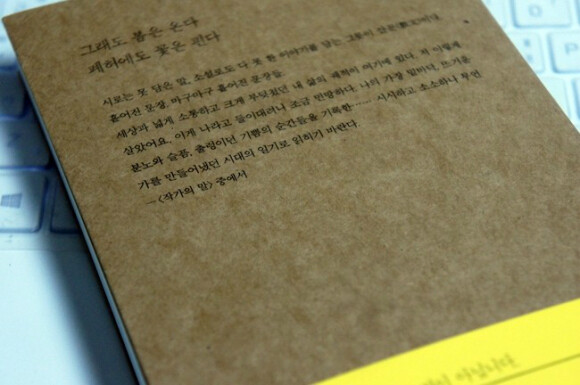 그래도 봄은 온다
폐허에도 꽃은 핀다
시로는 못 담은 말, 소설로도 다 못 한 이야기를 담는 그릇이 산문(散文)이다.
흩어진 문장, 마구마구 흩어진 문장들.
세상과 넓게 소통하고 크게 부딪쳤던 내 삶의 궤적이 여기에 있다. 저 이렇게
살았어요. 이게 나라고 들이대려니 조금 민망하다. 나의 가장 밑바닥, 뜨거운
분노와 슬픔, 출렁이던 기쁨의 순간들을 기록한…… 시시하고 소소하나 무언
가를 만들어냈던 시대의 일기로 읽히기 바란다.
―〈작가의 말〉 중에서
아닙니다